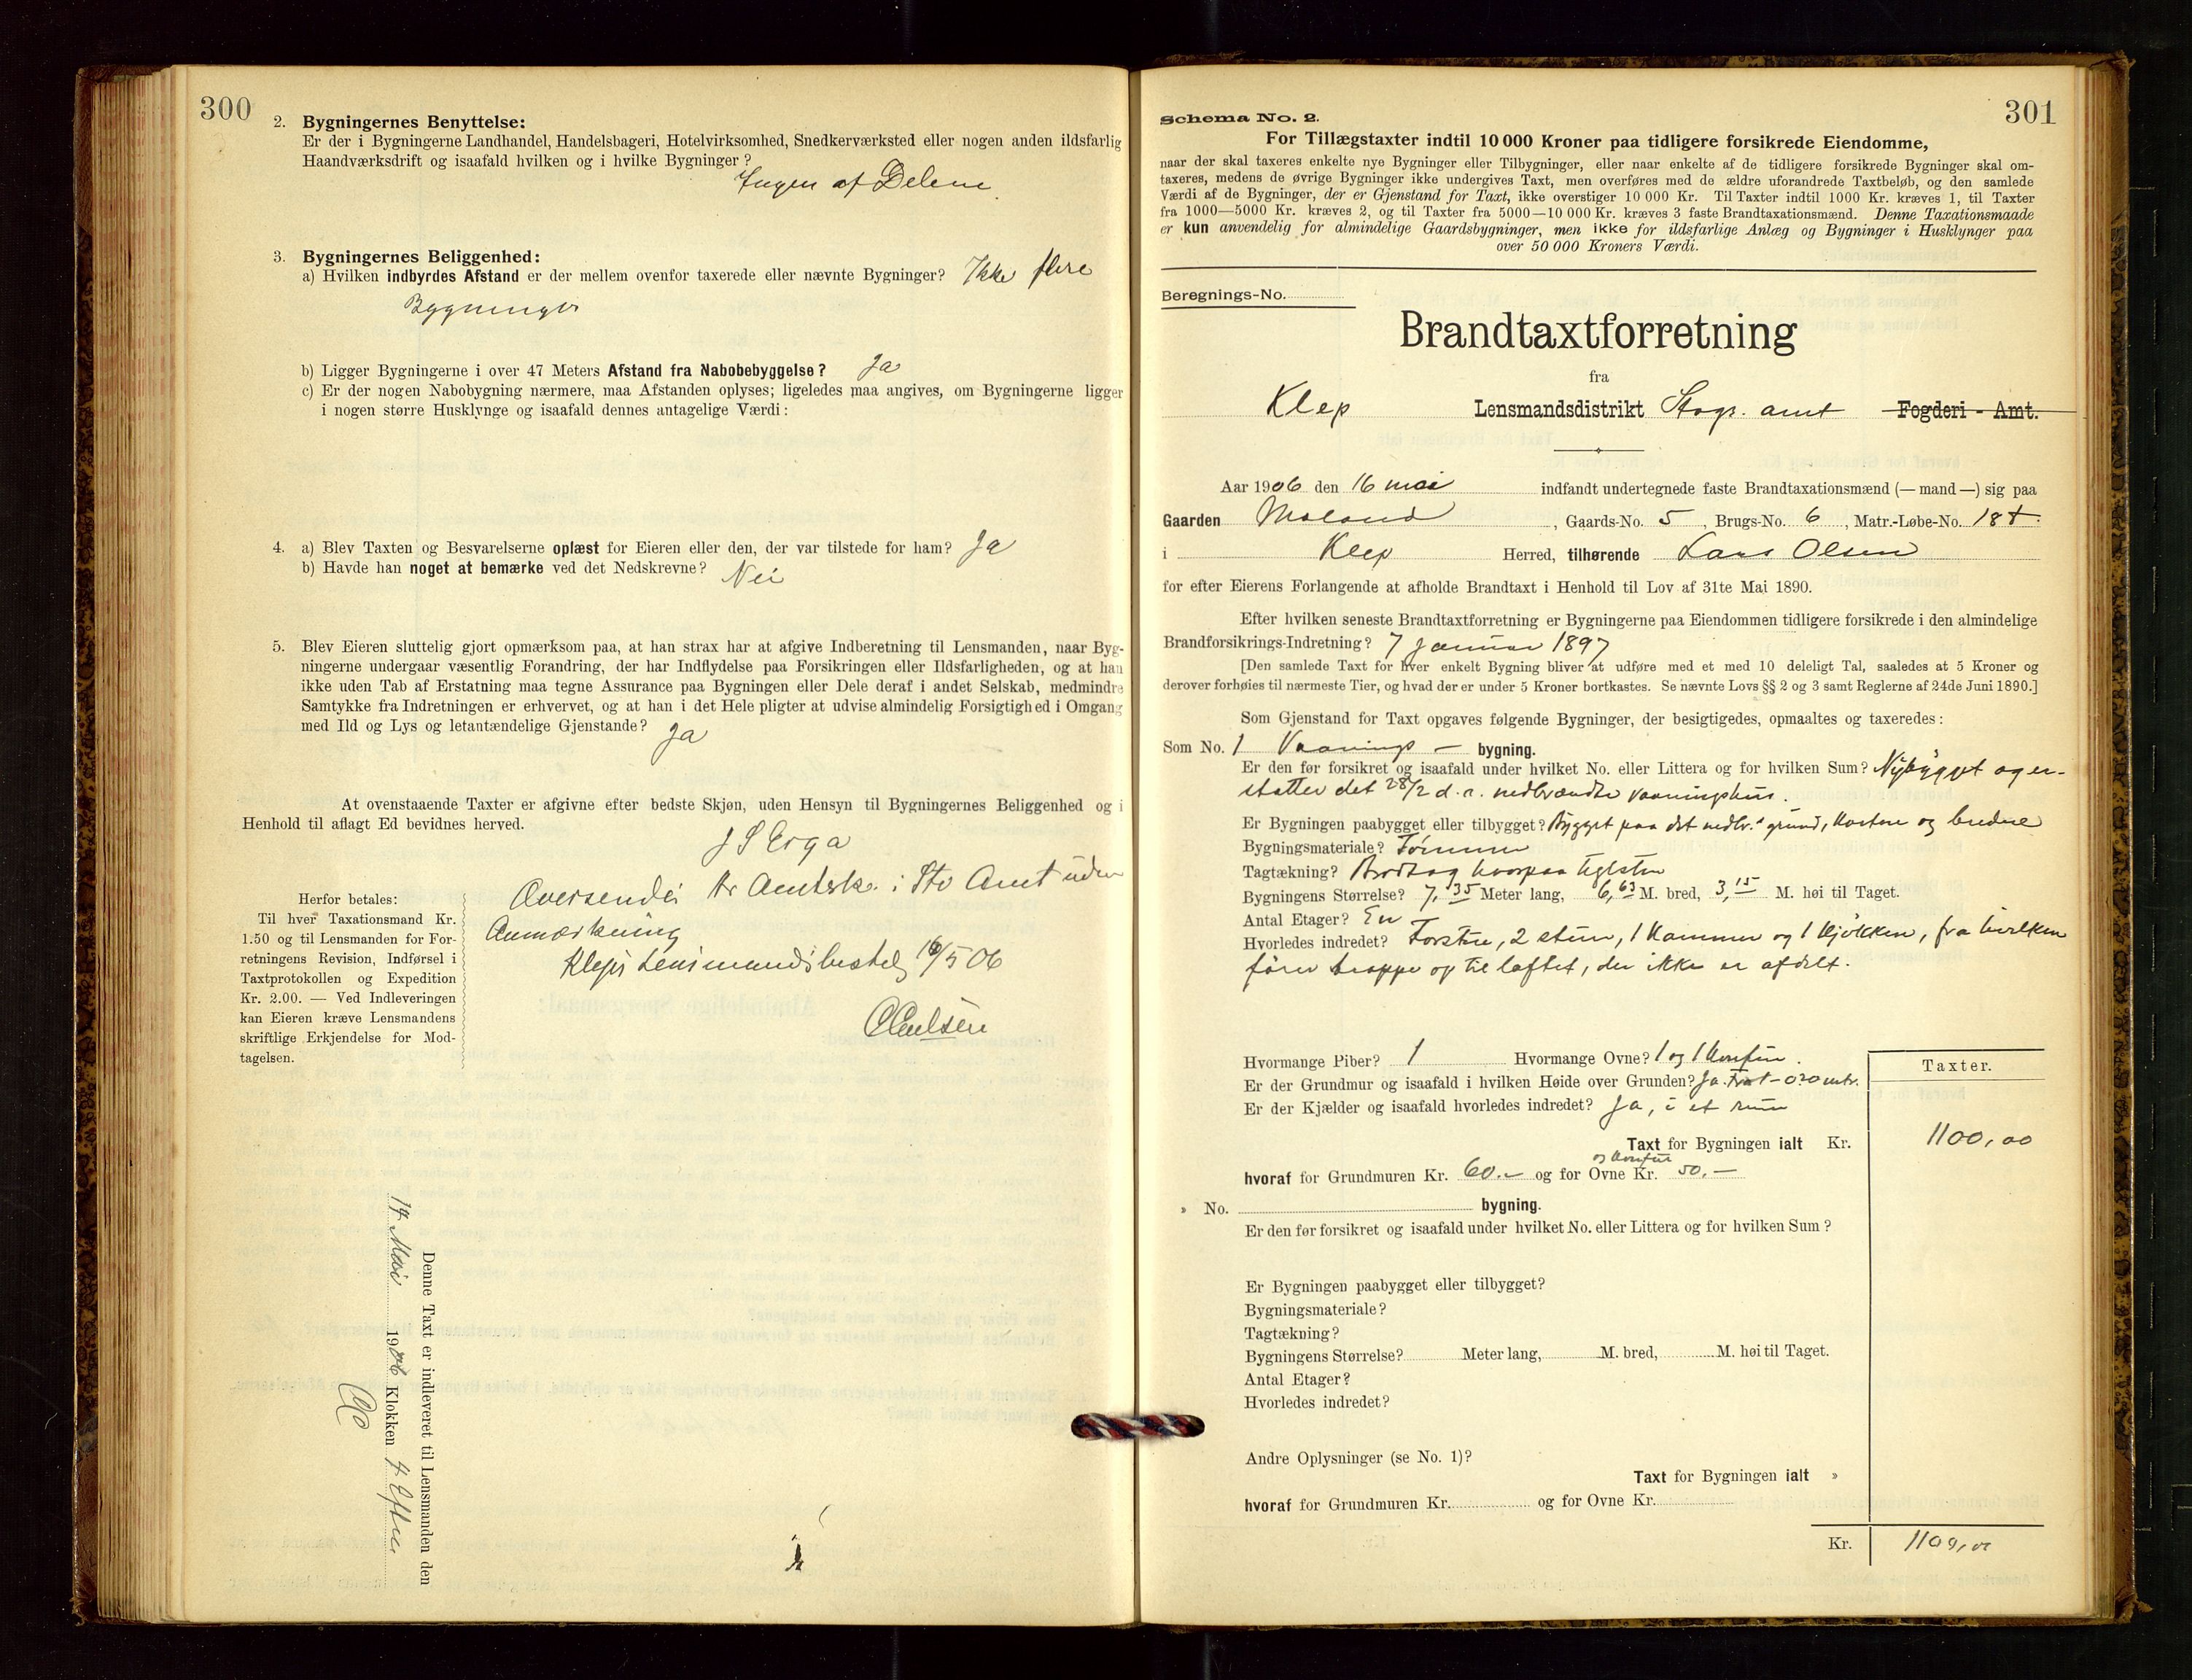 300
2. Bygningernes Benyttelse:
Er der i Bygningerne Landhandel, Handelsbageri, Hotelvirksomhed, Snedkerværksted eller nogen anden ildsfarlig
Haandværksdrift og isaafald hvilken og i hvilke Bygninger?
Ingen af Delene
3. Bygningernes Beliggenhed:
a) Hvilken indbyrdes Afstand er der mellem ovenfor taxerede eller nævnte Bygninger? Ikke flere
Bygninger
b) Ligger Bygningerne i over 47 Meters Afstand fra Nabobebyggelse? Ja
c) Er der nogen Nabobygning nærmere, maa Afstanden oplyses; ligeledes maa angives, om Bygningerne ligger
i nogen større Husklynge og isaafald dennes antagelige Værdi:
4. a) Blev Taxten og Besvarelserne oplæst for Eieren eller den, der var tilstede for ham? Ja
b) Havde han noget at bemærke ved det Nedskrevne? Nei
5. Blev Eieren sluttelig gjort opmærksom paa, at han strax har at afgive Indberetning til Lensmanden, naar Byg-
ningerne undergaar væsentlig Forandring, der har Indflydelse paa Forsikringen eller Ildsfarligheden, og at han
ikke uden Tab af Erstatning maa tegne Assurance paa Bygningen eller Dele deraf i andet Selskab, medmindre
Samtykke fra Indretningen er erhvervet, og at han i det Hele pligter at udvise almindelig Forsigtighed i Omgang
med Ild og Lys og letantændelige Gjenstande? Ja
At ovenstaaende Taxter er afgivne efter bedste Skjøn, uden Hensyn til Bygningernes Beliggenhed og i
Henhold til aflagt Ed bevidnes herved.
J S Erga
Oversendes Hr Amtssk. i Stv Amt uden
Anmærkning
Kleps Lensmandsbestil 16/5 06
Herfor betales:
Til hver Taxationsmand Kr.
1.50 og til Lensmanden for For-
retningens Revision, Indførsel i
Taxtprotokollen og Expedition
Kr. 2.00. — Ved Indleveringen
kan Eieren kræve Lensmandens
skriftlige Erkjendelse for Mod-
tagelsen.
Denne Taxt er indleveret til Lensmanden den
17 Mai 1906 Klokken 4 Efter
301
Schema No. 2.
For Tillægstaxter indtil 10 000 Kroner paa tidligere forsikrede Eiendomme,
naar der skal taxeres enkelte nye Bygninger eller Tilbygninger, eller naar enkelte af de tidligere forsikrede Bygninger skal om-
taxeres, medens de øvrige Bygninger ikke undergives Taxt, men overføres med de ældre uforandrede Taxtbeløb, og den samlede
Værdi af de Bygninger, der er Gjenstand for Taxt, ikke overstiger 10 000 Kr. Til Taxter indtil 1000 Kr. kræves 1, til Taxter
fra 1000—5000 Kr. kræves 2, og til Taxter fra 5000—10 000 Kr. kræves 3 faste Brandtaxationsmænd. Denne Taxationsmaade
er kun anvendelig for almindelige Gaardsbygninger, men ikke for ildsfarlige Anlæg og Bygninger i Husklynger paa
over 50 000 Kroners Værdi.
Beregnings-No.
Brandtaxtforretning
fra
Klep Lensmandsdistrikt Stvgr. amt Fogderi - Amt.
Aar 1906 den 16 mai indfandt undertegnede faste Brandtaxationsmænd (— mand —) sig paa
Gaarden Moland, Gaards-No. 5, Brugs-No. 6, Matr.-Løbe-No. 18 t.
i Klep Herred, tilhørende Lars Olsen
for efter Eierens Forlangende at afholde Brandtaxt i Henhold til Lov af 31te Mai 1890.
Efter hvilken seneste Brandtaxtforretning er Bygningerne paa Eiendommen tidligere forsikrede i den almindelige
Brandforsikrings-Indretning? 7 Januar 1897
[Den samlede Taxt for hver enkelt Bygning bliver at udføre med et med 10 deleligt Tal, saaledes at 5 Kroner og
derover forhøies til nærmeste Tier, og hvad der er under 5 Kroner bortkastes. Se nævnte Lovs §§ 2 og 3 samt Reglerne af 24de Juni 1890.]
Som Gjenstand for Taxt opgaves følgende Bygninger, der besigtigedes, opmaaltes og taxeredes:
Som No. 1 Vaanings — bygning.
Er den før forsikret og isaafald under hvilket No. eller Littera og for hvilken Sum? Nybygget og er-
statter det 28/2 d. a. nedbrændte vaaningshus.
Er Bygningen paabygget eller tilbygget? Bygget paa det nedbr. grund, kortere og bredere
Bygningsmateriale? Tømmer
Tagtækning? Bordtag hvorpaa teglsten
Bygningens Størrelse? 7,35 Meter lang, 6,63 M. bred, 3,15 M. høi til Taget.
Antal Etager? En
Hvorledes indredet? Forstue, 2 stuer, 1 kammer og 1 kjøkken, fra hvilken
fører trappe op til loftet, der ikke er afdelt.
Hvormange Piber? 1 Hvormange Ovne? 1 og 1 komfur.
Er der Grundmur og isaafald i hvilken Høide over Grunden? Ja. - 0.20 mtr.
Er der Kjælder og isaafald hvorledes indredet? Ja, i et rum
Taxter.
Taxt for Bygningen ialt Kr. 1100,00
og komfur
hvoraf for Grundmuren Kr. 60.- og for Ovne Kr. 50.—
» No. bygning.
Er den før forsikret og isaafald under hvilket No. eller Littera og for hvilken Sum?
Er Bygningen paabygget eller tilbygget?
Bygningsmateriale?
Tagtækning?
Bygningens Størrelse? Meter lang, M. bred, M. høi til Taget.
Antal Etager?
Hvorledes indredet?
Andre Oplysninger (se No. 1)?
Taxt for Bygningen ialt »
hvoraf for Grundmuren Kr. og for Ovne Kr.
Kr. 1100,00